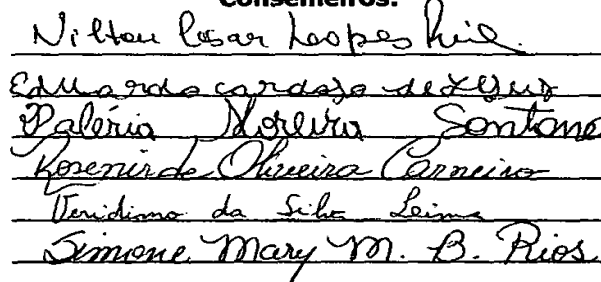 Conselheiros:
Nilton Cesar Loopes
Eduardo cardozo de
Valeria Moreira Santana
Rosenir de Oliveira Carneiro
Veridimo da Silva
Simone Mary M. B. Rios